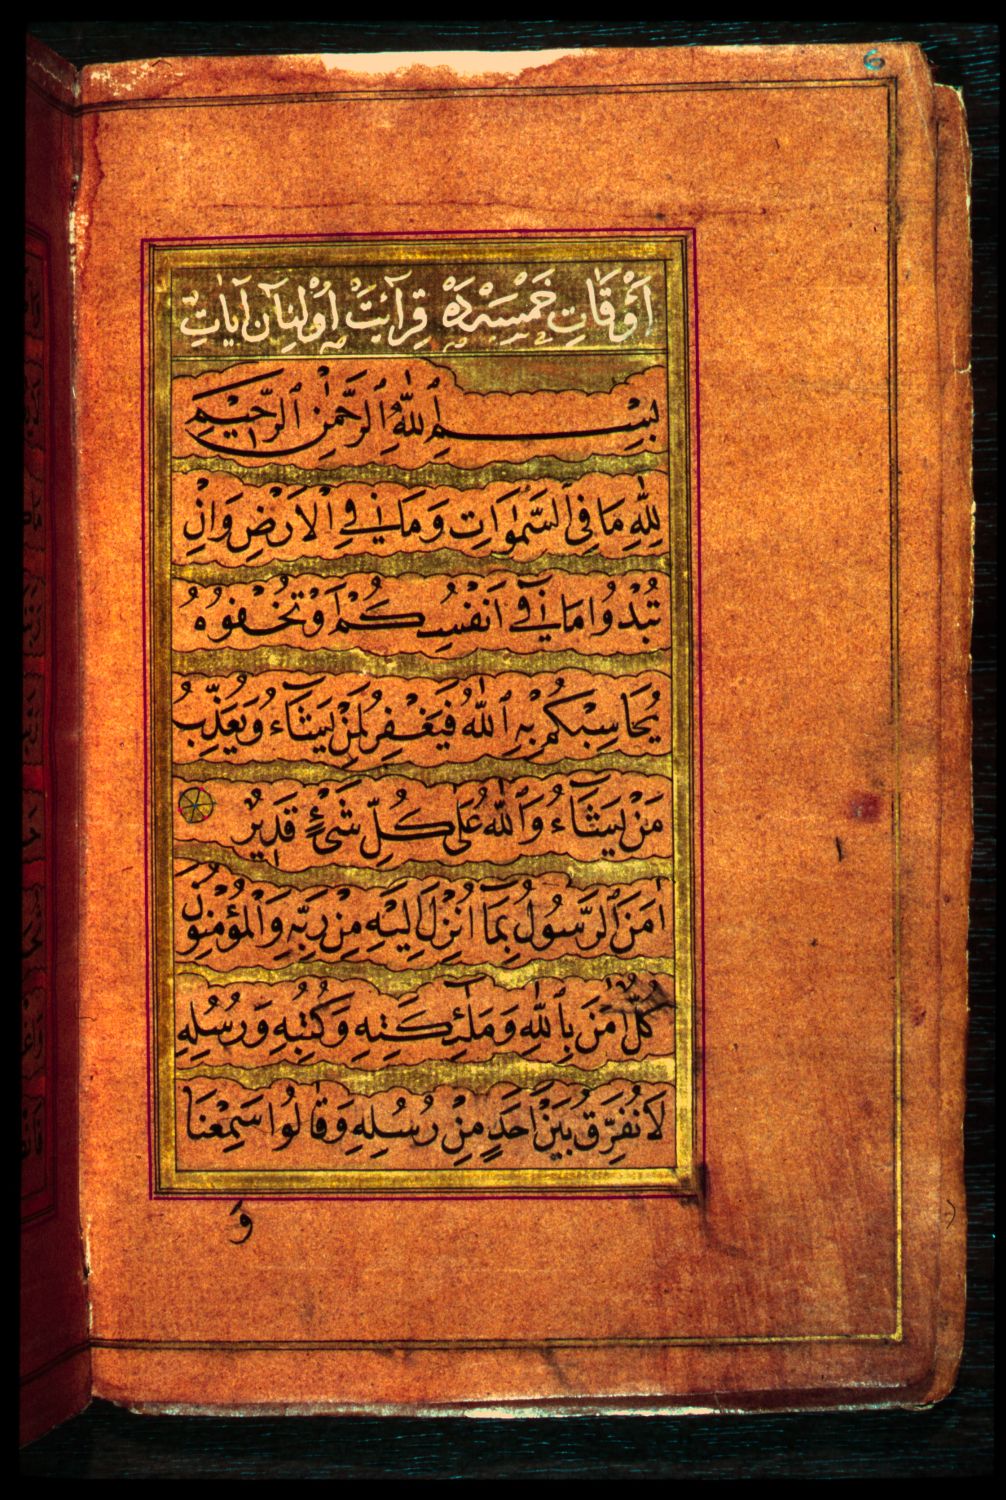 6
اَوْقَاتِ خَمْسَه‌دَه قِرَآئَتْ اُوْلُنَانْ آيَاتْ
بِسْمِ اللّٰهِ الرَّحْمٰنِ الرَّحِيمِ
لِلّٰهِ مَا فِى السَّمٰوَاتِ وَمَا فِي الْاَرْضِ وَاِنْ
تُبْدُوا مَا فِٓي اَنْفُسِكُمْ اَوْ تُخْفُوهُ
يُحَاسِبْكُمْ بِهِ اللّٰهُ فَيَغْفِرُ لِمَنْ يَشَٓاءُ وَيُعَذِّبُ
مَنْ يَشَٓاءُ وَاللّٰهُ عَلٰى كُلِّ شَىْءٍ قَدِيرٌ
اٰمَنَ الرَّسُولُ بِمَٓا اُنْزِلَ اِلَيْهِ مِنْ رَبِّهِ وَالْمُؤْمِنُونَ
كُلٌّ اٰمَنَ بِاللّٰهِ وَمَلٰٓئِكَتِهِ وَكُتُبِهِ وَرُسُلِهِ
لَا نُفَرِّقُ بَيْنَ اَحَدٍ مِنْ رُسُلِهِ وَقَالُوا سَمِعْنَا
وَ